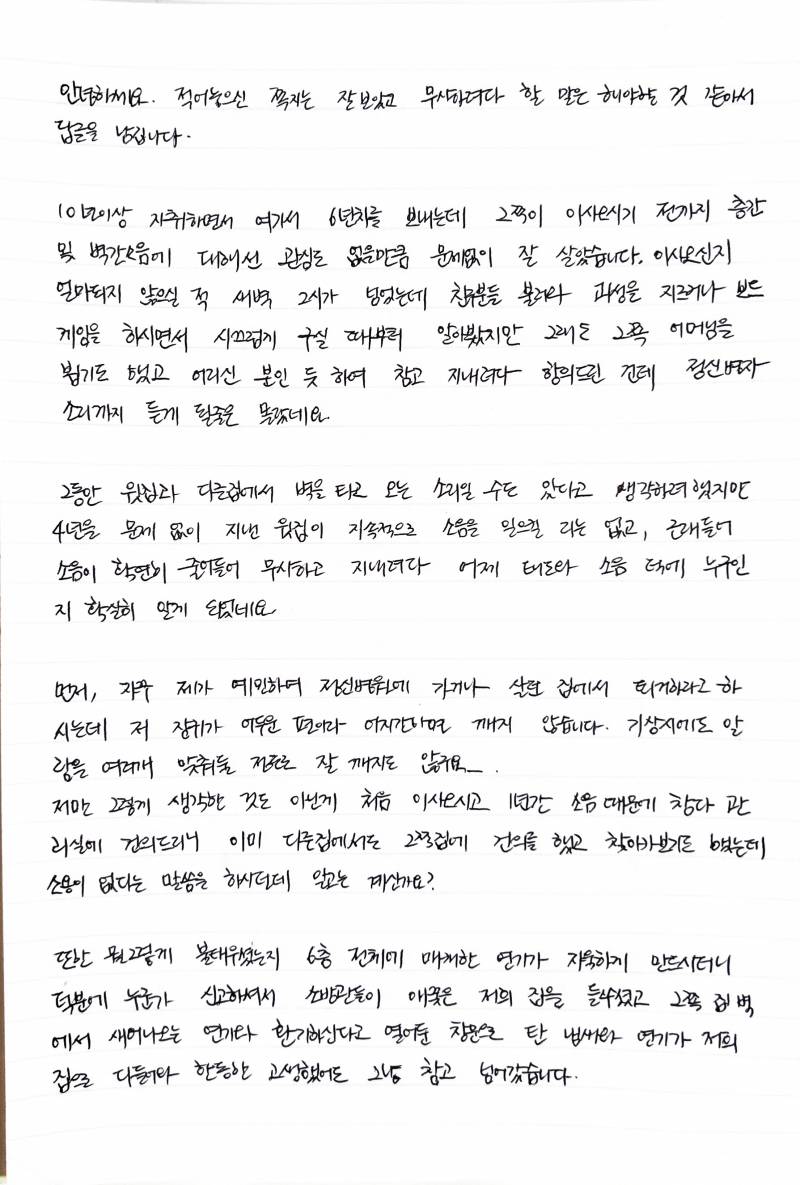 안녕하세요. 적어놓으신 쪽지는 잘 보았고 무시하려다 할 말은 해야할 것 같아서
답글을 남깁니다.
10년이상 자취하면서 여기서 6년차를 보내는데 그쪽이 이사오시기 전까지 층간
및 벽간소음에 대해선 관심도 없을만큼 문제없이 잘 살았습니다. 이사오신지
얼마되지 않으실 적 새벽 2시가 넘었는데 친구분들 불러와 괴성을 지르거나 보드
게임을 하시면서 시끄럽게 구실 때부터 알아봤지만 그래도 그쪽 어머님을
뵙기도 했고 어리신 분인 듯 하여 참고 지내려다 항의드린 건데 정신병자
소리까지 듣게 될줄은 몰랐네요.
그동안 윗집과 다른집에서 벽을 타고 오는 소리일 수도 있다고 생각하려 했지만
4년을 문제 없이 지낸 윗집이 지속적으로 소음을 일으킬 리는 없고, 근래들어
소음이 확연히 줄어들어 무시하고 지내려다 어제 태도와 소음 덕에 누구인
지 확실히 알게 되었네요
먼저, 자꾸 제가 예민하며 정신병원에 가거나 살던 집에서 퇴거하라고 하
시는데 저 잠귀가 어두운 편이라 어지간하면 깨지 않습니다. 기상시에도 알
람을 여러개 맞춰둘 정도로 잘 깨지도 않구요_.
저만 그렇게 생각한 것도 아닌게 처음 이사오시고 1년간 소음 때문에 참다 관
리실에 건의드리니 이미 다른집에서도 그쪽집에 건의를 했고 찾아가보기도 했는데
소용이 없다는 말씀을 하시던데 알고는 계신가요?
또한 뭘 그렇게 불태우셨는지 6층 전체에 매캐한 연기가 자욱하게 만드시더니
덕분에 누군가 신고하셔서 소방관들이 애꿎은 저희 집을 들쑤셨고 그쪽 집 벽
에서 새어나오는 연기와 환기하신다고 열어둔 창문으로 탄 냄새와 연기가 저희
집으로 다들어와 한동안 고생했어도 그냥 참고 넘어갔습니다.